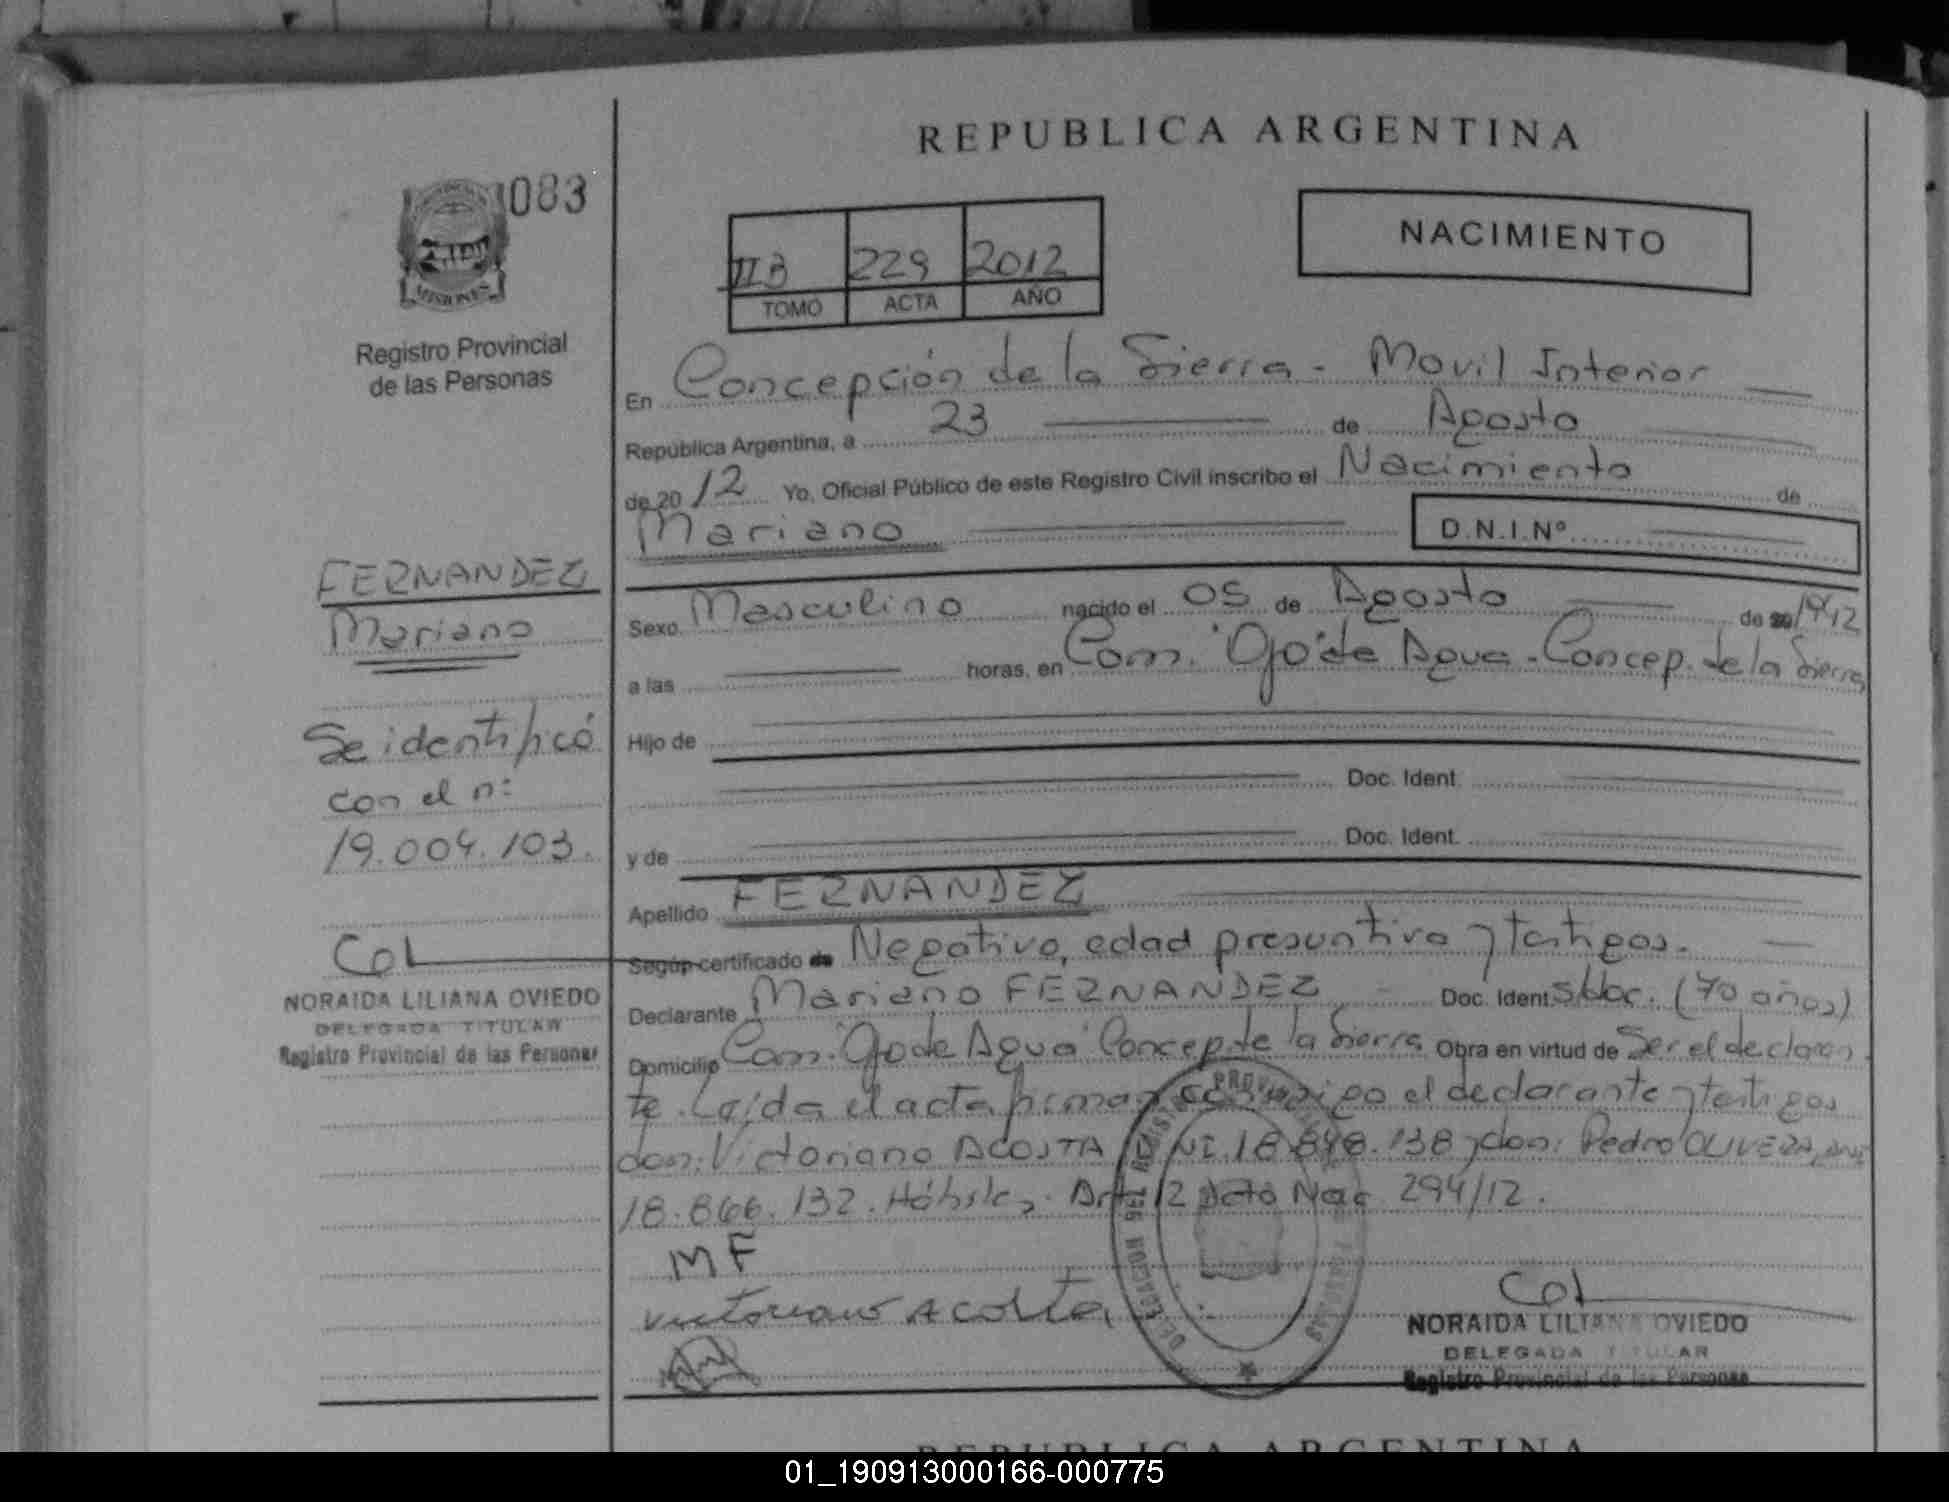 REPUBLICA ARGENTINA
083
MISIONES
Registro Provincial
de las Personas
IIB 229 2012
TOMO ACTA AÑO
NACIMIENTO
En Concepción de la Sierra - Movil Interior
República Argentina, a 23 de Agosto
de 20 12 Yo, Oficial Público de este Registro Civil inscribo el Nacimiento de
Mariano D.N.I.Nº
FERNANDEZ
Mariano
Se identificó
con el nº
19.004.103.
NORAIDA LILIANA OVIEDO
DELEGADA TITULAR
Registro Provincial de las Personas
Sexo Masculino nacido el 05 de Agosto de 1942
a las horas, en Com. "Ojo de Agua - Concep. de la Sierra
Hijo de
Doc. Ident.
y de Doc. Ident.
Apellido FERNANDEZ
Según certificado de Negativo, edad presuntiva y testigos.
Declarante Mariano FERNANDEZ Doc. Ident. s/doc. (70 años)
Domicilio Com. "Ojo de Agua" Concep. de la Sierra Obra en virtud de Ser el declaran
te. Leída el acta firman conmigo el declarante y testigos
don: Victoriano ACOSTA DNI 18.848.138 y don: Pedro OLIVERA, DNI
18.866.132. Hábiles. Art. 12 Dcto Nac. 294/12.
MF
Victoriano Acosta
NORAIDA LILIANA OVIEDO
DELEGADA TITULAR
Registro Provincial de las Personas
REPUBLICA ARGENTINA
01_190913000166-000775